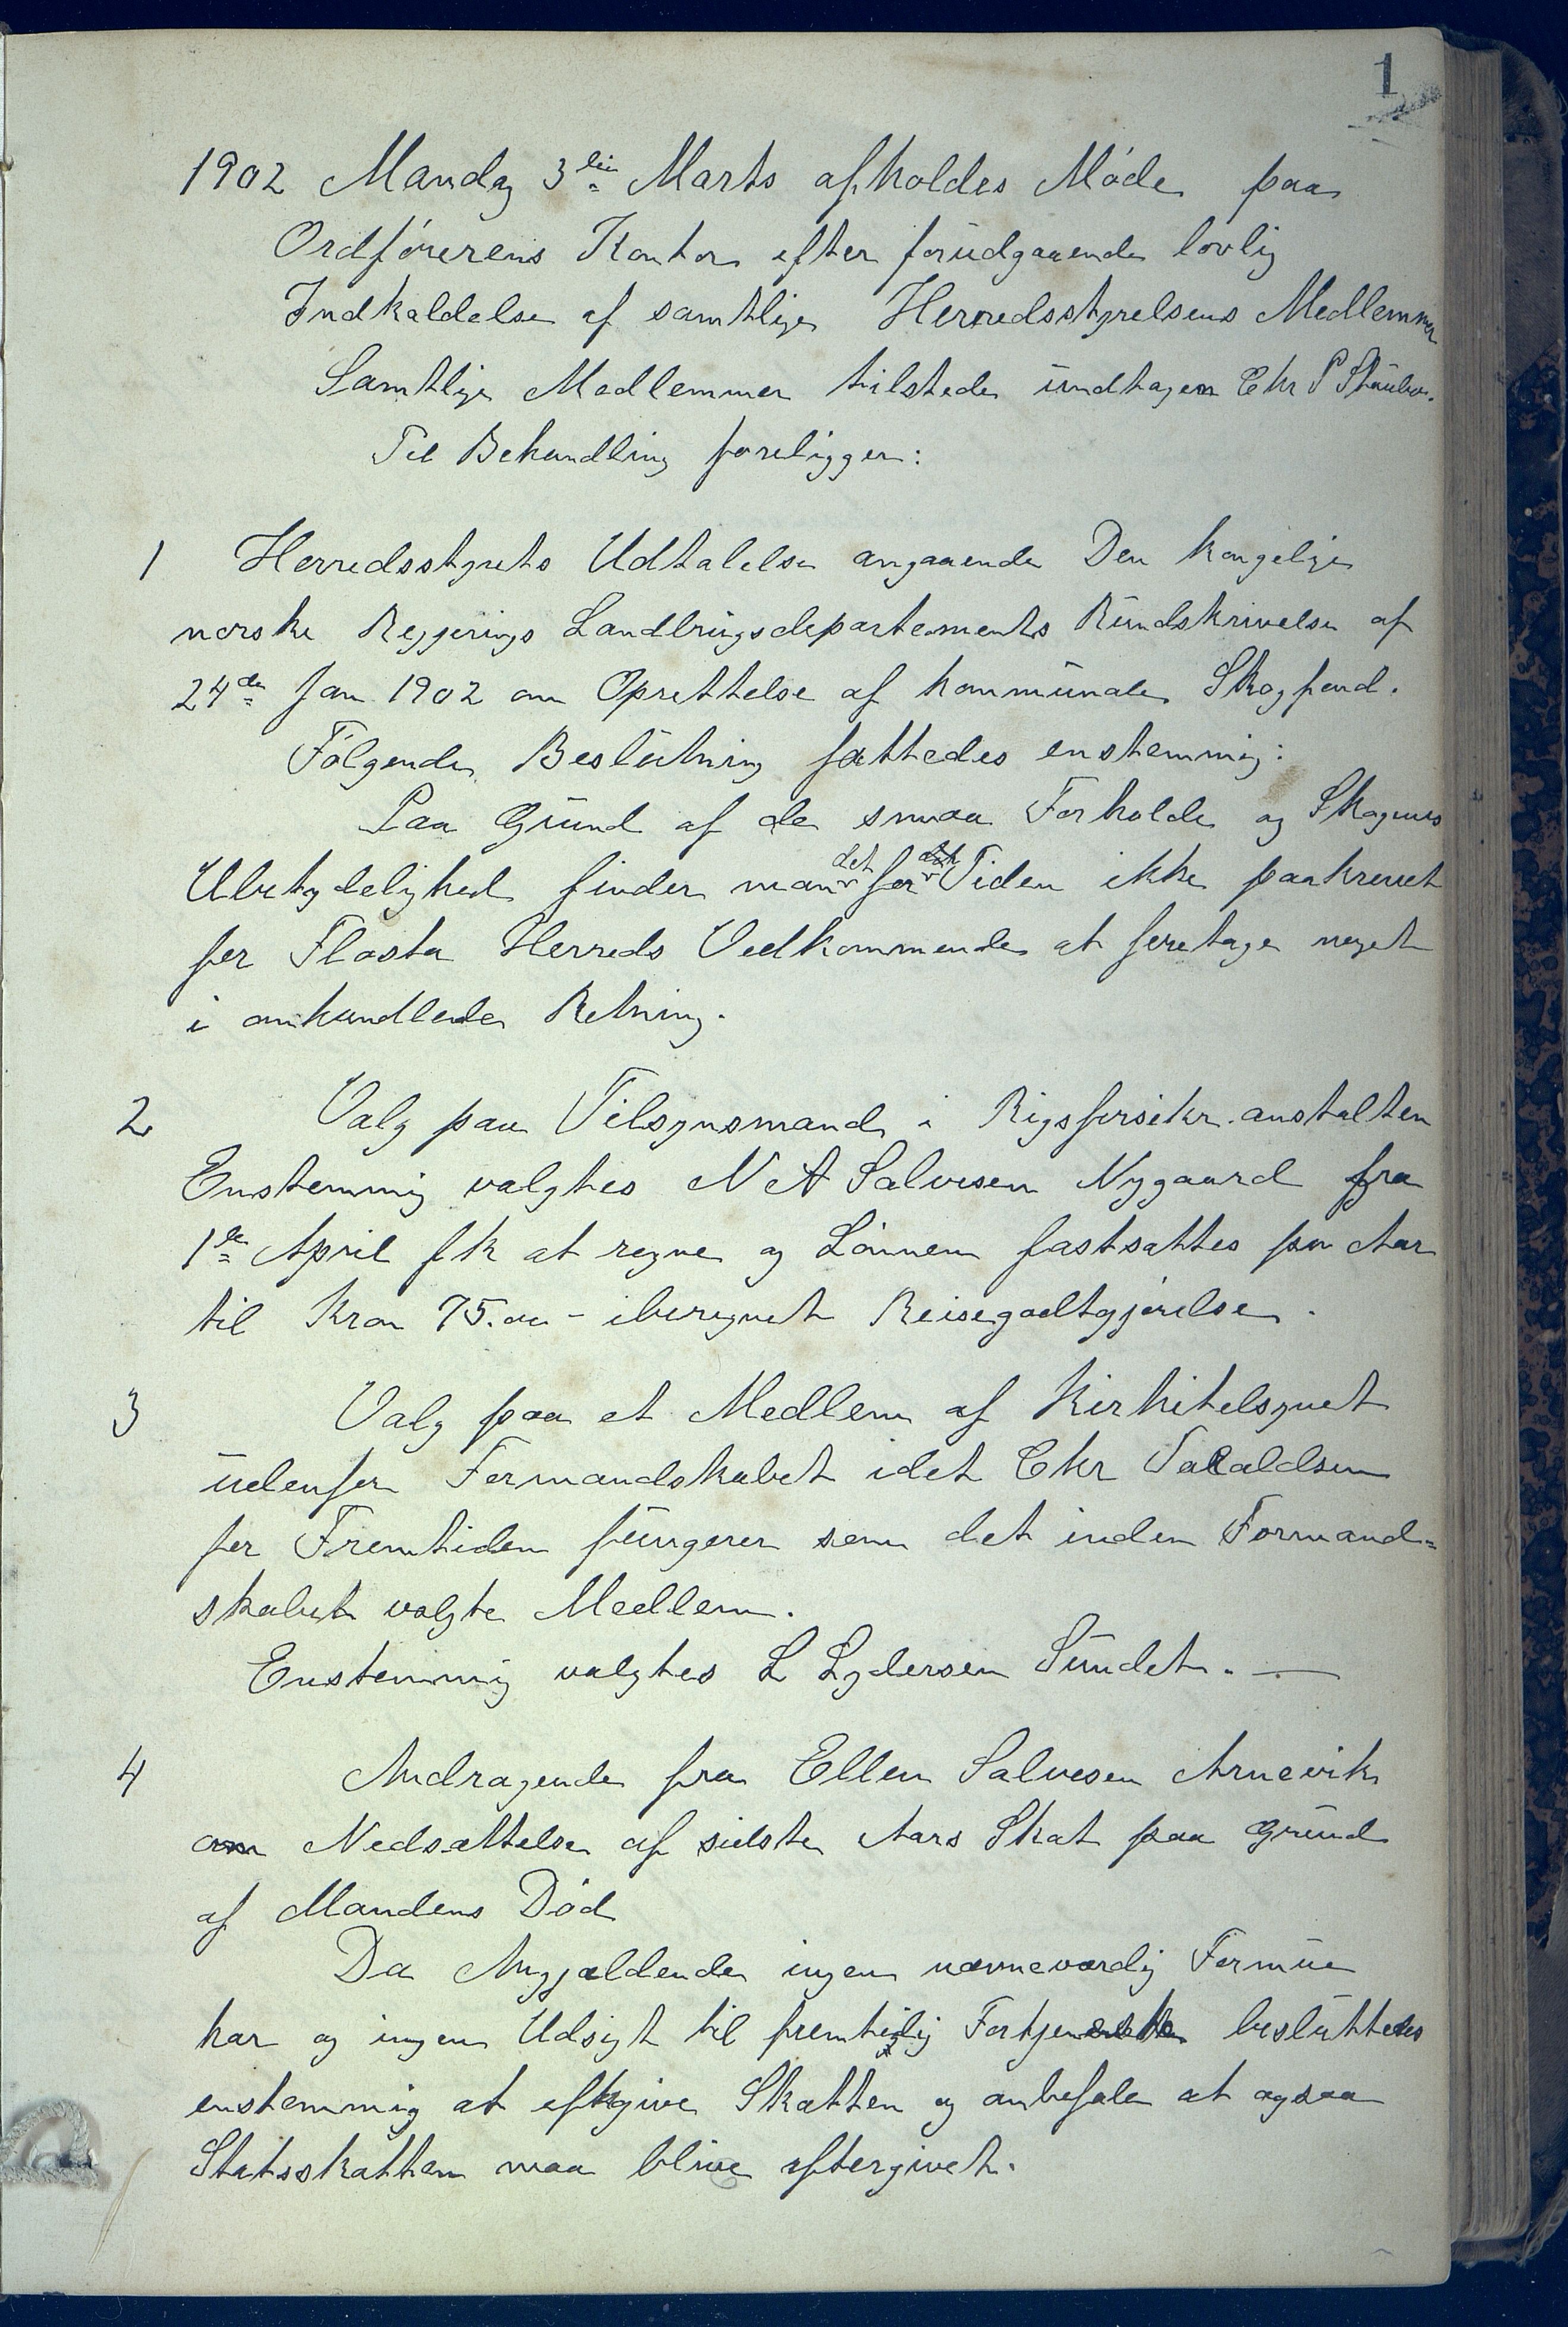 1
1902 Mandag 3die Marts afholdes Møde paa
Ordførerens Kontor efter forudgaaende lovlig
Indkaldelse af samtlige Herredsstyrelsens Medlemmer
Samtlige Medlemmer tilstede undtagen Chr P Staubo.
Til Behandling foreligger:
1 Herredsstyrets Udtalelse angaaende Den kongelige
norske Regjerings Landbrugsdepartements Rundskrivelse af
24de Jan 1902 om Oprettelse af kommunale Skogfond.
Følgende Beslutning fattedes enstemmig:
Paa Grund af de smaa Forholde og Skogens
Ubetydelighed finder man det for Tiden ikke paakrevet
for Flosta Herreds Vedkommende at foretage noget
i omhandlede Retning.
2 Valg paa Tilsynsmand i Rigsforsikr.anstalten
Enstemmig valgtes N A Salvesen Nygaard fra
1ste April fk at regne og Lønnen fastsattes pr Aar
til Kron 75.oo - iberegnet Reisegodtgjørelse.
3 Valg paa et Medlem af Kirketilsynet
udenfor Formandskabet idet Chr Taraldsen
for Fremtiden fungerer som det inden Formand-
skabet valgte Medlem.
Enstemmig valgtes L Lydersen Sundet. —
4 Andragende fra Ellen Salvesen Arnevik
om Nedsættelse af sidste Aars Skat paa Grund
af Mandens Død
Da Angjældende ingen nævneværdig Formue
har og ingen Udsigt til fremtidig Fortjeneste besluttedes
enstemmig at eftergive Skatten og anbefale at ogsaa
Statsskatten maa blive eftergivet.